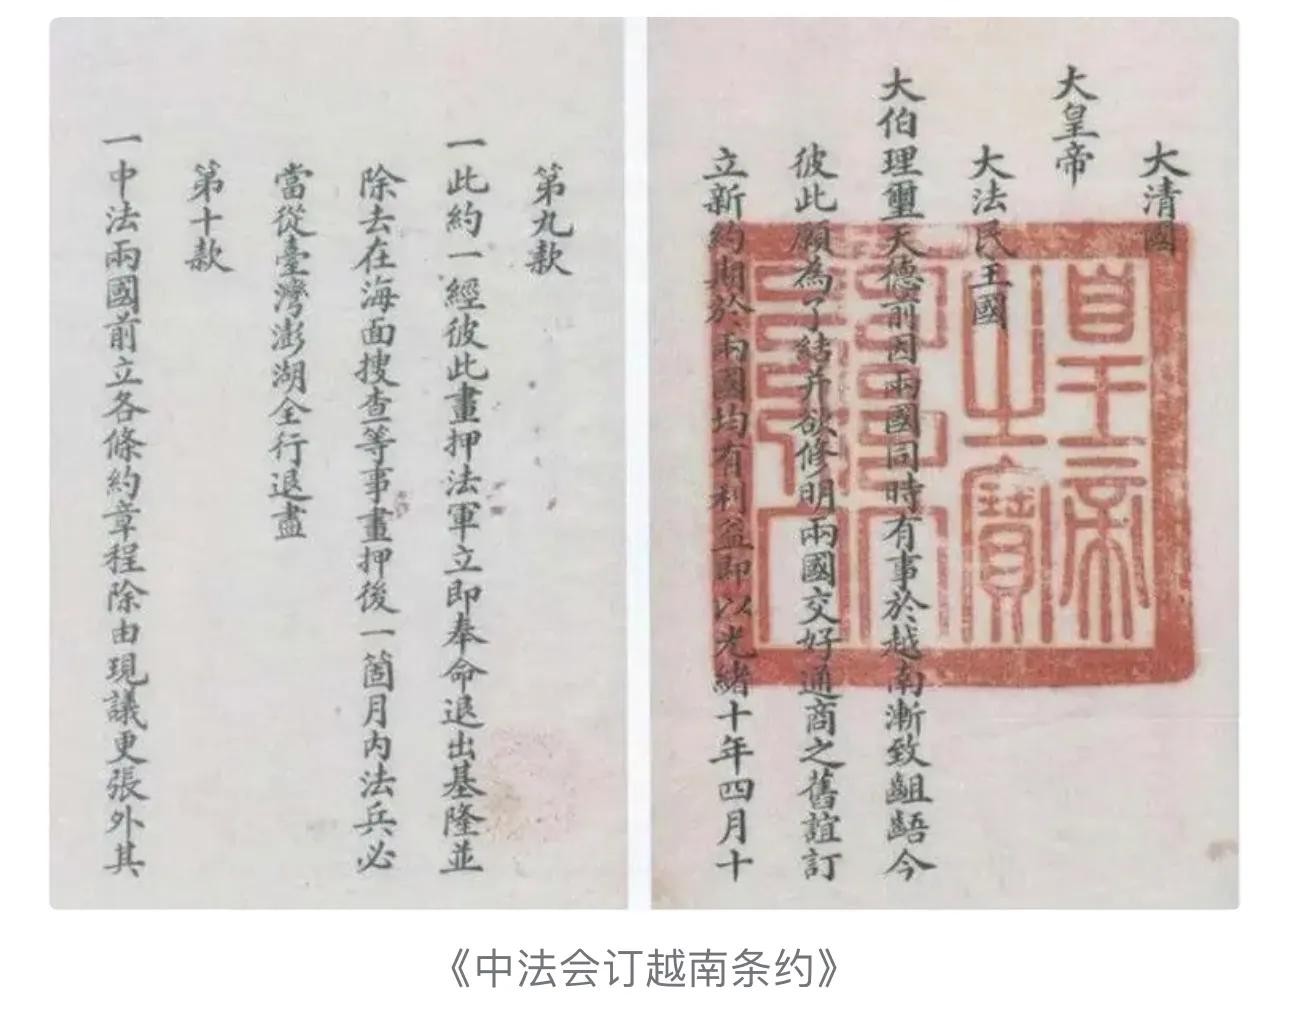 大清國
大皇帝
大法民主國
大伯理璽天德前因兩國同時有事於越南漸致齟齬今
彼此願為了結并欲修明兩國交好通商之舊誼訂
立新約期於兩國均有利益即以光緒十年四月十
皇帝
之寶
第九款
一此約一經彼此畫押法軍立即奉命退出基隆並
除去在海面搜查等事畫押後一箇月內法兵必
當從臺灣澎湖全行退盡
第十款
一中法兩國前立各條約章程除由現議更張外其
《中法会订越南条约》